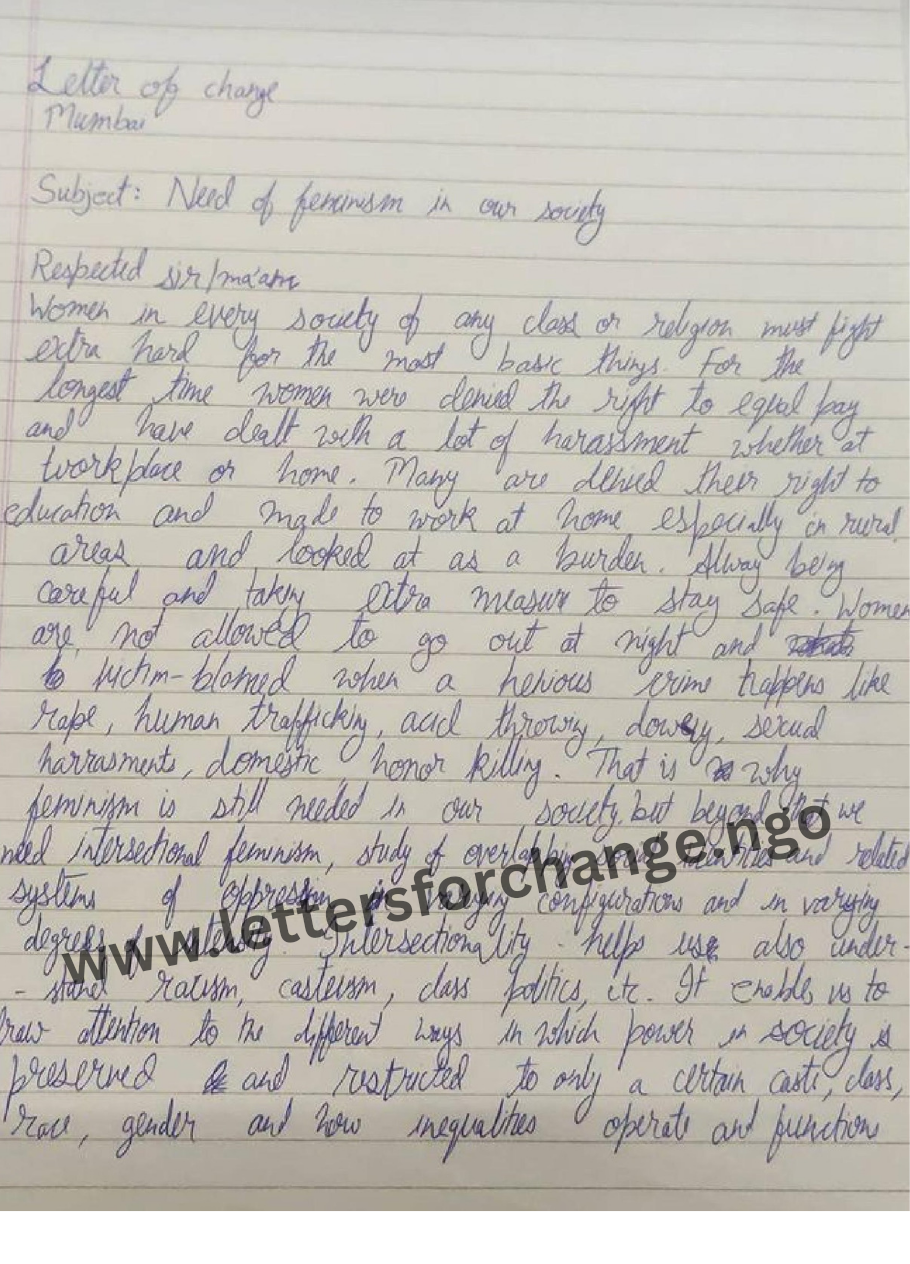 Letter of change
Mumbai
Subject: Need of feminism in our society
Respected sir/ma'am
Women in every society of any class or religion must fight
extra hard for the most basic things. For the
longest time women were denied the right to equal pay
and have dealt with a lot of harassment whether at
workplace or home. Many are denied their right to
education and made to work at home especially in rural
areas and looked at as a burden. Alway being
careful and taking extra measur to stay safe. Women
are not allowed to go out at night and
victim-blamed when a henious crime happens like
rape, human trafficking, acid throwing, dowry, sexual
harrasments, domestic honor killing. That is why
feminism is still needed in our society. but beyond that we
need intersectional feminism, study of overlapping social and related
systems of oppression in varying configurations and in varying
degrees of intensity. Intersectionality helps us also under-
- stand racism, casteism, class politics, etc. It enables us to
draw attention to the different ways in which power in society is
preserved and restructed to only a certain caste, class,
race, gender and how inequalities operate and functions
www.lettersforchange.ngo